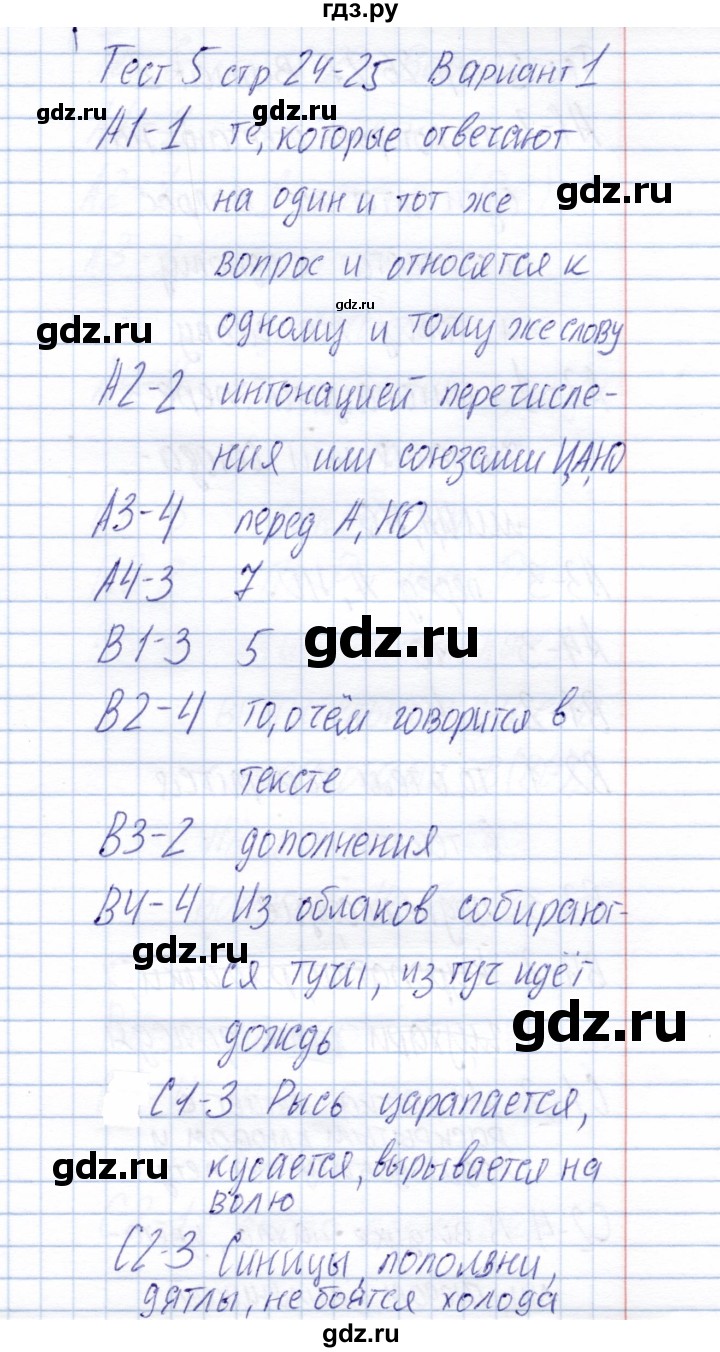 гдз.ру
Тест 5 стр 24-25 Вариант 1
gdz.ru
gdz.ru
А1-1 те, которые отвечают
gdz.ru
на один и тот же
вопрос и относятся к
gdz.ru
gdz.ru
одному и тому же слову
А2-2 интонацией перечисле-
ния или союзами И,А,НО
А3-4 перед А, НО
А4-3 7
gdz.ru
В1-3 5
В2-4 то, о чём говорится в
тексте
В3-2 дополнения
В4-4 Из облаков собирают-
gdz.ru
ся тучи, из туч идёт
gdz.ru
дождь
С1-3 Рысь царапается,
gdz.ru
кусается, вырывается на
волю
С2-3 Синицы, поползни,
дятлы, не боятся холода
gdz.ru